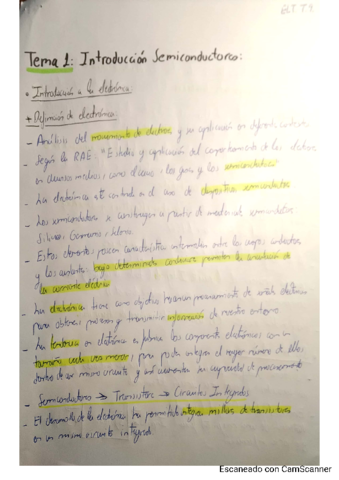 ELT T1
Tema 1: Introducción Semiconductores:
• Introducción a la electrónica:
+ Definición de electrónica:
- Análisis del movimiento de electrones y su aplicación en diferentes
- Según la RAE: "Estudio y aplicación del comportamiento de los electrones
en diversos medios, como el vacío, los gases y los semiconductores"
- La electrónica está centrada en el uso de dispositivos semiconductores
- Los semiconductores se construyen a partir de materiales semiconductores
Silicio, Germanio,
- Estos elementos poseen características intermedias entre los cuerpos conductores
y los aislantes, bajo determinadas condiciones permiten la circulación de
la corriente eléctrica
- La electrónica tiene como objetivo
para obtener, procesar y transmitir información de nuestro entorno
- La tendencia en electrónica es fabricar los componentes electrónicos con un
tamaño cada vez menor, para poder integrar el mayor número de ellos
dentro de un mismo circuito y así aumentar su capacidad de procesamiento
- Semiconductores → Transistores → Circuitos Integrados
- El desarrollo de la electrónica ha permitido integrar millones de transistores
en un mismo circuito integrado.
Escaneado con CamScanner